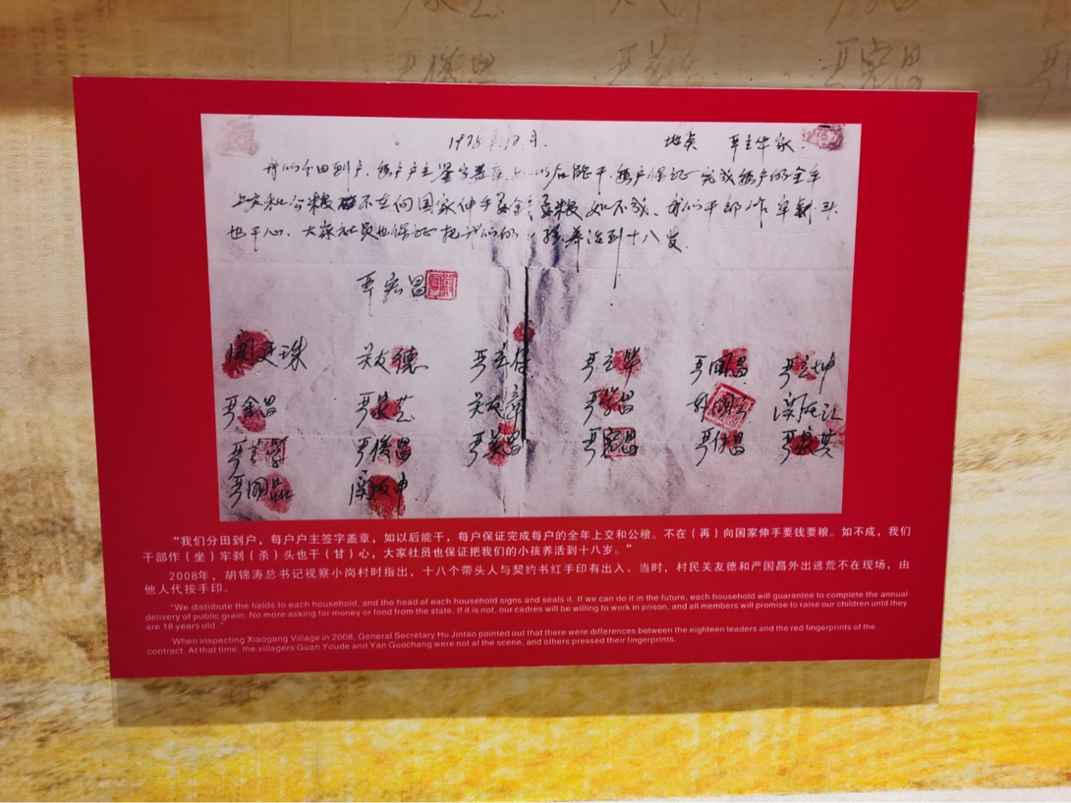 1978年12月. 地点 严立华家.
我们分田到户,每户户主签字盖章,如以后能干,每户保证完成每户的全年
上交和公粮 不在向国家伸手要钱要粮,如不成,我们干部作牢刹头
也干心,大家社员也保证把我们的小孩养活到十八岁.
严宏昌
关廷珠 关友德 严立符 严立华 严国昌 严立坤
严金昌 严家芝 关友章 严学昌 韩国云 关友江
严立学 严俊昌 严美昌 严宏昌 严付昌 严家其
严国品 关友申
“我们分田到户，每户户主签字盖章，如以后能干，每户保证完成每户的全年上交和公粮。不在（再）向国家伸手要钱要粮。如不成，我们
干部作（坐）牢刹（杀）头也干（甘）心，大家社员也保证把我们的小孩养活到十八岁。”
2008年，胡锦涛总书记视察小岗村时指出，十八个带头人与契约书红手印有出入。当时，村民关友德和严国昌外出逃荒不在现场，由
他人代按手印。
"We distribute the fields to each household, and the head of each household signs and seals it. If we can do it in the future, each household will guarantee to complete the annual
delivery of public grain. No more asking for money or food from the state. If it is not, our cadres will be willing to work in prison, and all members will promise to raise our children until they
are 18 years old. "
When inspecting Xiaogang Village in 2008, General Secretary Hu Jintao pointed out that there were differences between the eighteen leaders and the red fingerprints of the
contract. At that time, the villagers Guan Youde and Yan Guochang were not at the scene, and others pressed their fingerprints.